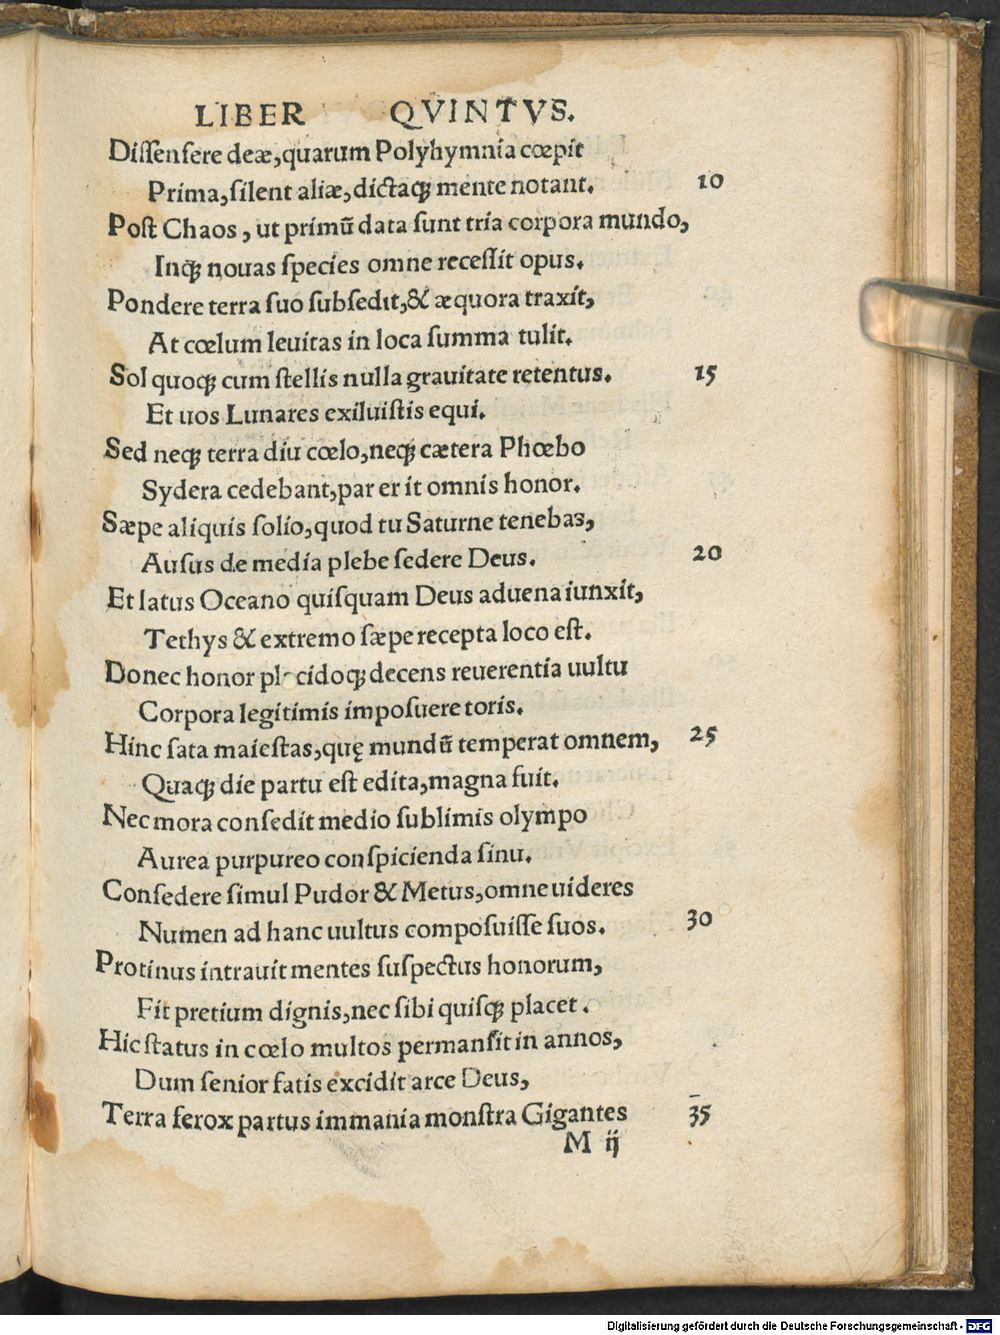 LIBER QVINTVS.
Diſſenſere deæ,quarum Polyhymnia cœpit
Prima,ſilent aliæ,dictaqꝫ mente notant. 10
Poſt Chaos , ut primū data ſunt tria corpora mundo,
Inqꝫ nouas ſpecies omne receſſit opus.
Pondere terra ſuo ſubſedit,& æquora traxit,
At cœlum leuitas in loca ſumma tulit.
Sol quoqꝫ cum ſtellis nulla grauitate retentus. 15
Et uos Lunares exiluiſtis equi.
Sed neqꝫ terra diu cœlo,neqꝫ cætera Phœbo
Sydera cedebant,par er it omnis honor.
Sæpe aliquis ſolio,quod tu Saturne tenebas,
Auſus de media plebe ſedere Deus. 20
Et latus Oceano quiſquam Deus aduena iunxit,
Tethys & extremo ſæpe recepta loco eſt.
Donec honor placidoqꝫ decens reuerentia uultu
Corpora legitimis impoſuere toris.
Hinc ſata maieſtas,quę mundū temperat omnem, 25
Quaqꝫ die partu eſt edita,magna fuit.
Nec mora conſedit medio ſublimis olympo
Aurea purpureo conſpicienda ſinu.
Conſedere ſimul Pudor & Metus,omne uideres
Numen ad hanc uultus compoſuiſſe ſuos. 30
Protinus intrauit mentes ſuſpectus honorum,
Fit pretium dignis,nec ſibi quiſqꝫ placet .
Hic ſtatus in cœlo multos permanſit in annos,
Dum ſenior fatis excidit arce Deus,
Terra ferox partus immania monſtra Gigantes 35
M ij
Digitalisierung gefördert durch die Deutsche Forschungsgemeinschaft - DFG